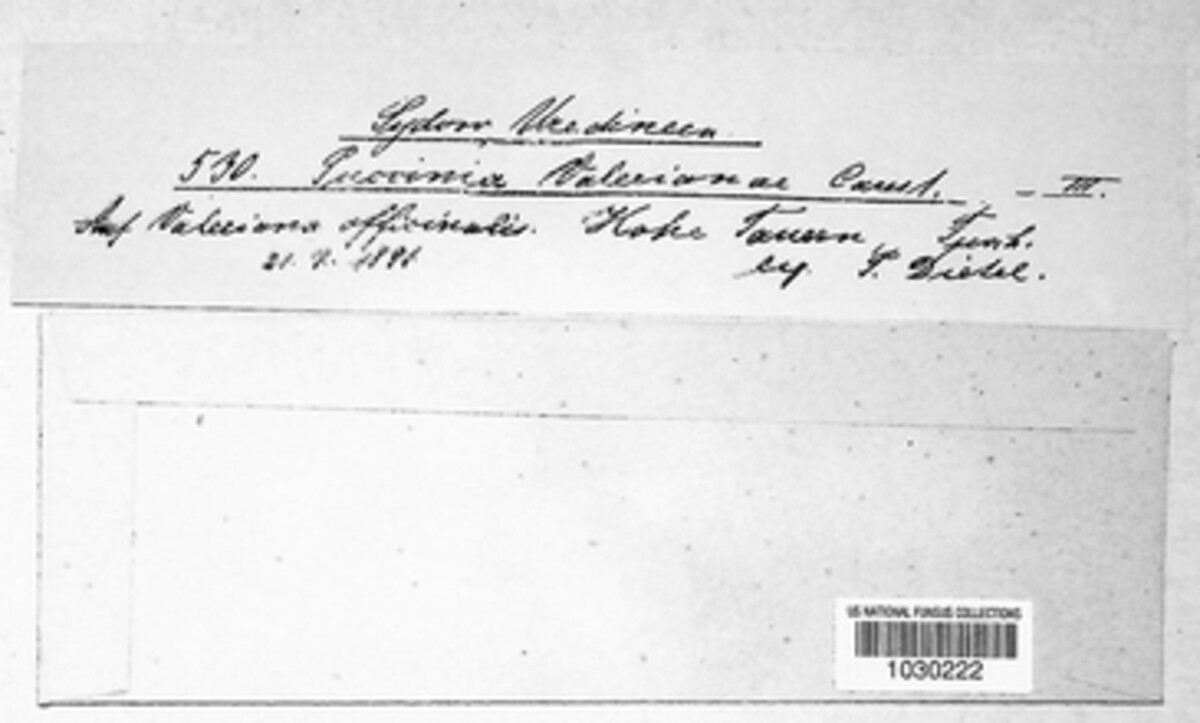 Sydow Uredineen
530. Puccinia Valerianae Carest. - III.
Auf Valeriana officinalis. Hohe Tauern,
21. 7. 1891 leg. P. Dietel.
US NATIONAL FUNGUS COLLECTIONS
1030222